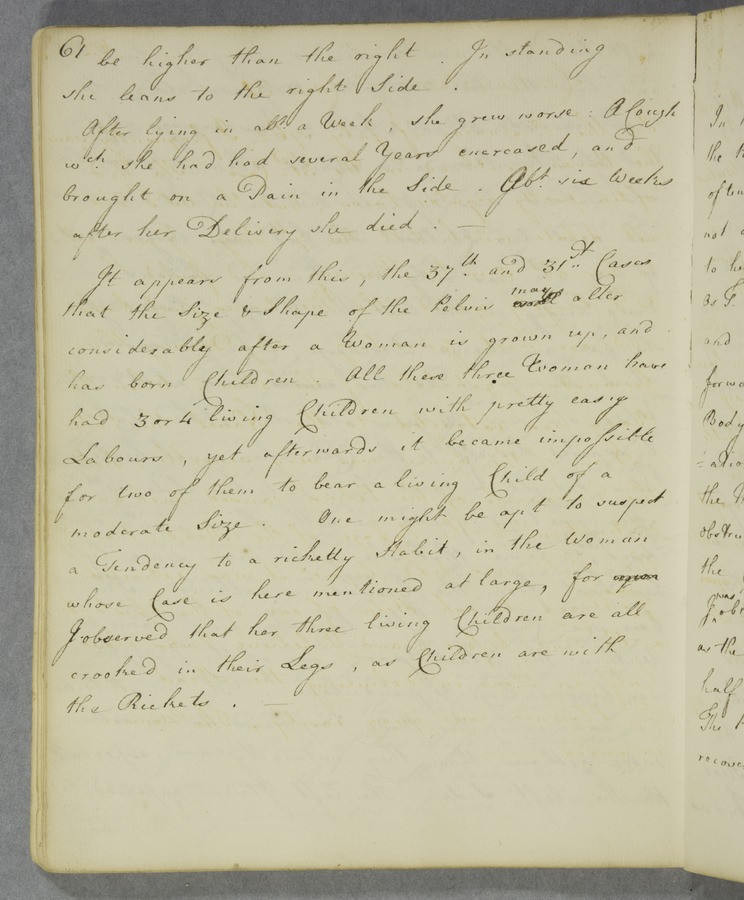 61 be higher than the right. In standing
she leans to the right Side.
After lying in abt. a Week, she grew worse: A Cough
wch. she had had several Years encreased, and
brought on a Pain in the Side. Abt. six Weeks
after her Delivery she died. —
It appears from this, the 37th. and 31st. Cases
that the Size & Shape of the Pelvis may alter
considerably after a Woman is grown up, and
has born Children. All these three Woman have
had 3 or 4 living Children with pretty easy
Labours, yet afterwards it became impossible
for two of them to bear a living Child of a
moderate Size. One might be apt to suspect
a Tendency to a ricketty Habit, in the Woman
whose Case is here mentioned at large, for upon
I observed that her three living Children are all
crooked in their Legs, as Children are with
the Rickets. —
In
the
often
not
to
as
and
Body
the
obstru
the
was
I obs
as the
half
The
recove